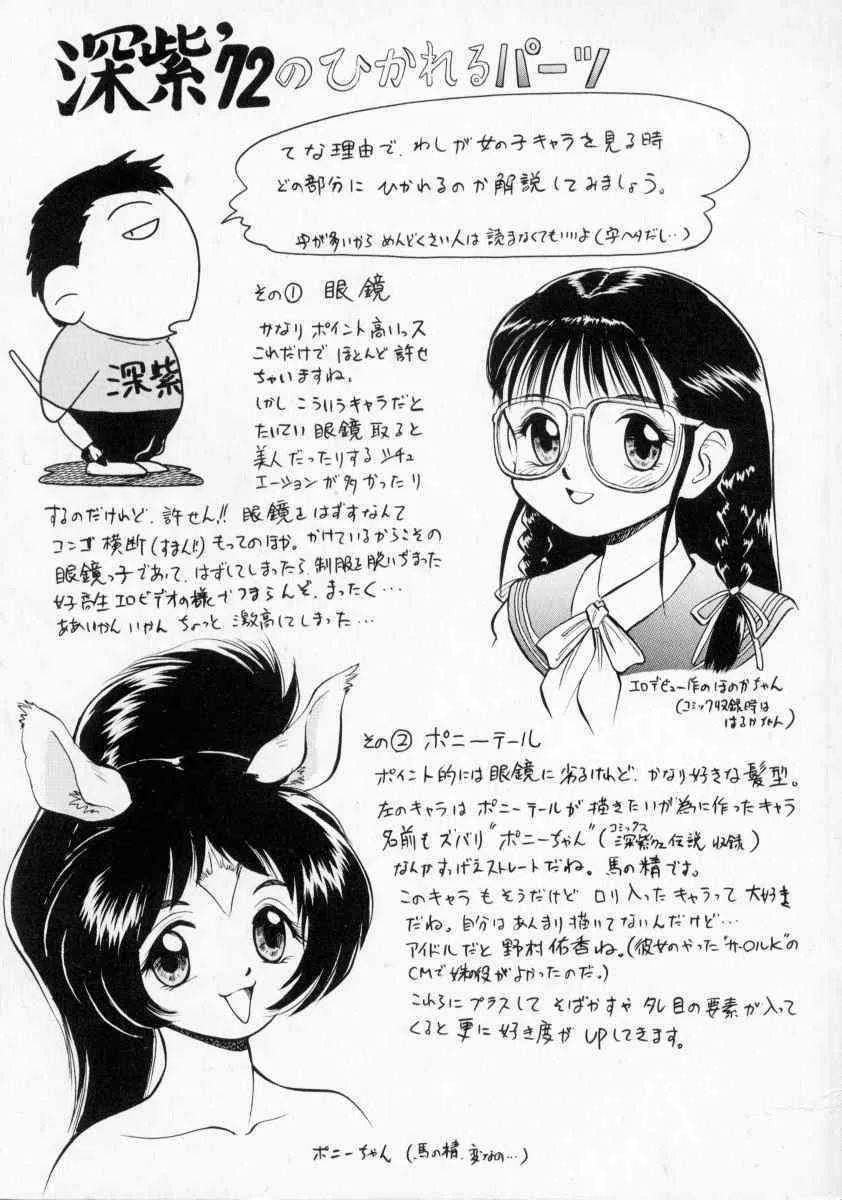 深紫'72のひかれるパーツ
てな理由で、わしが女の子キャラを見る時
どの部分に ひかれるのか解説してみましょう。
字が多いから めんどくさい人は 読まなくてもいいよ(字ヘタだし…)
その① 眼鏡
かなり ポイント高いっス
これだけで ほとんど 許せ
ちゃいますね。
しかし こういうキャラだと
たいてい 眼鏡 取ると
美人だったりする シチュ
エーションが多かったり
するのだけれど、許せん!! 眼鏡を はずすなんて
コンゴ横断(すまん)もってのほか。かけているからこその
眼鏡っ子であって、はずしてしまったら 制服を脱いちまった
女子高生エロビデオの様で つまらんぞ、まったく…
ああいかん いかん ちょっと 激高してしまった…
深紫
エロデビュー作の ほのかちゃん
(コミック収録時は
はるかちゃん)
その② ポニーテール
ポイント的には眼鏡に 劣るけれど、かなり好きな 髪型。
左のキャラは ポニーテールが 描きたいが為に作ったキャラ
名前も ズバリ "ポニーちゃん"(コミックス 深紫伝説 収録)
なんかすっげえストレートだね。馬の精です。
このキャラ も そうだけど ロリ入った キャラって 大好き
だね。自分は あんまり 描いてないんだけど…
アイドルだと 野村佑香ね。(彼女のやった"サ○ルK"の
CMで 妹役がよかったのだ。)
これらに プラスして そばかすや タレ目の要素が入って
くると 更に 好き度が UPしてきます。
ポニーちゃん (馬の精、変なの…)